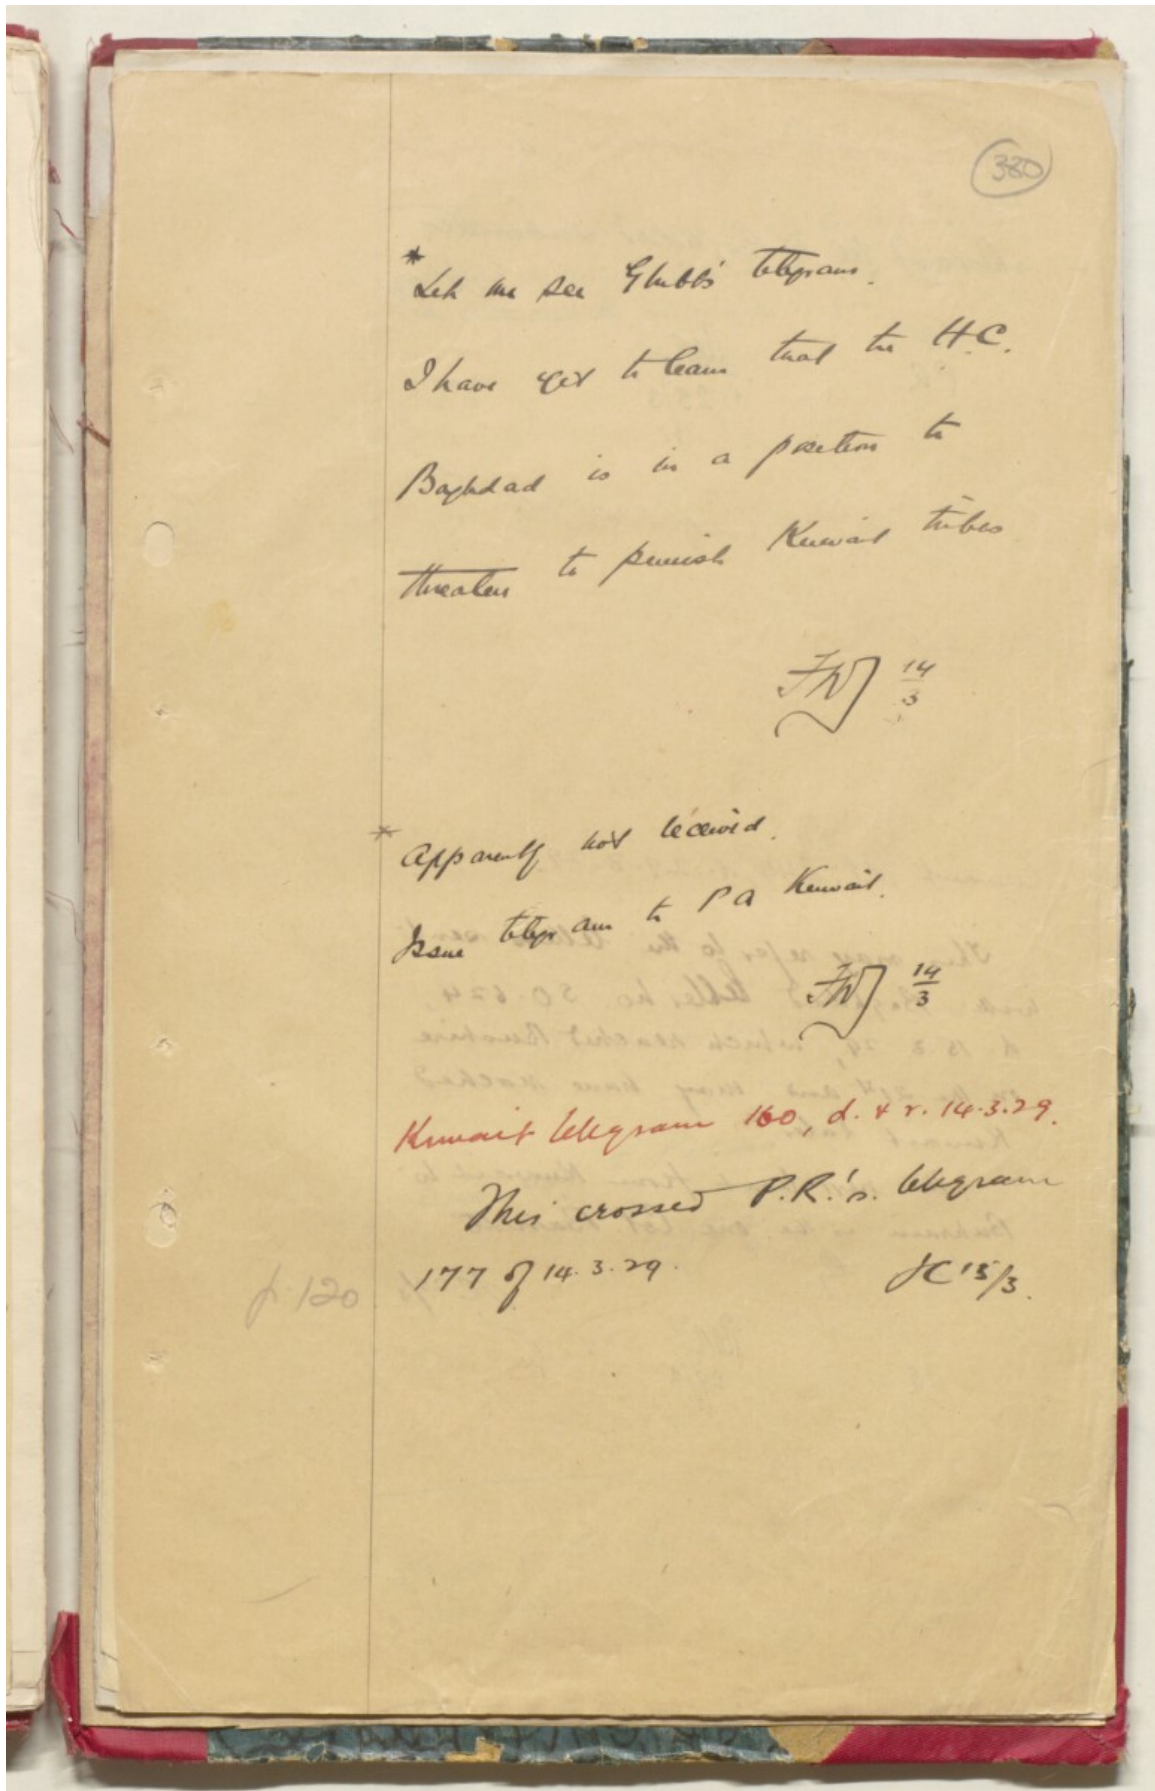 380
*
Let me see Glubb's telegram.
I have yet to learn that the H.C.
Baghdad is in a position to
threaten to punish Kuwait tribes
14/3
* Apparently not received.
Issue telegram to PA Kuwait.
14/3
Kuwait telegram 160, d. & r. 14.3.29.
This crossed P.R.'s telegram
177 of 14.3.29. 15/3.
p. 120